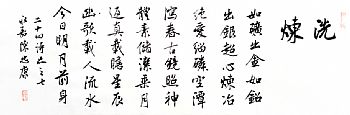 洗煉
如礦出金如鉛
出銀超心煉冶
絕愛緇磷空潭
瀉春古鏡照神
體素儲潔乘月
返真載瞻星辰
幽歌載人流水
今日明月前身
二十四詩品之七
永嘉陳忠康